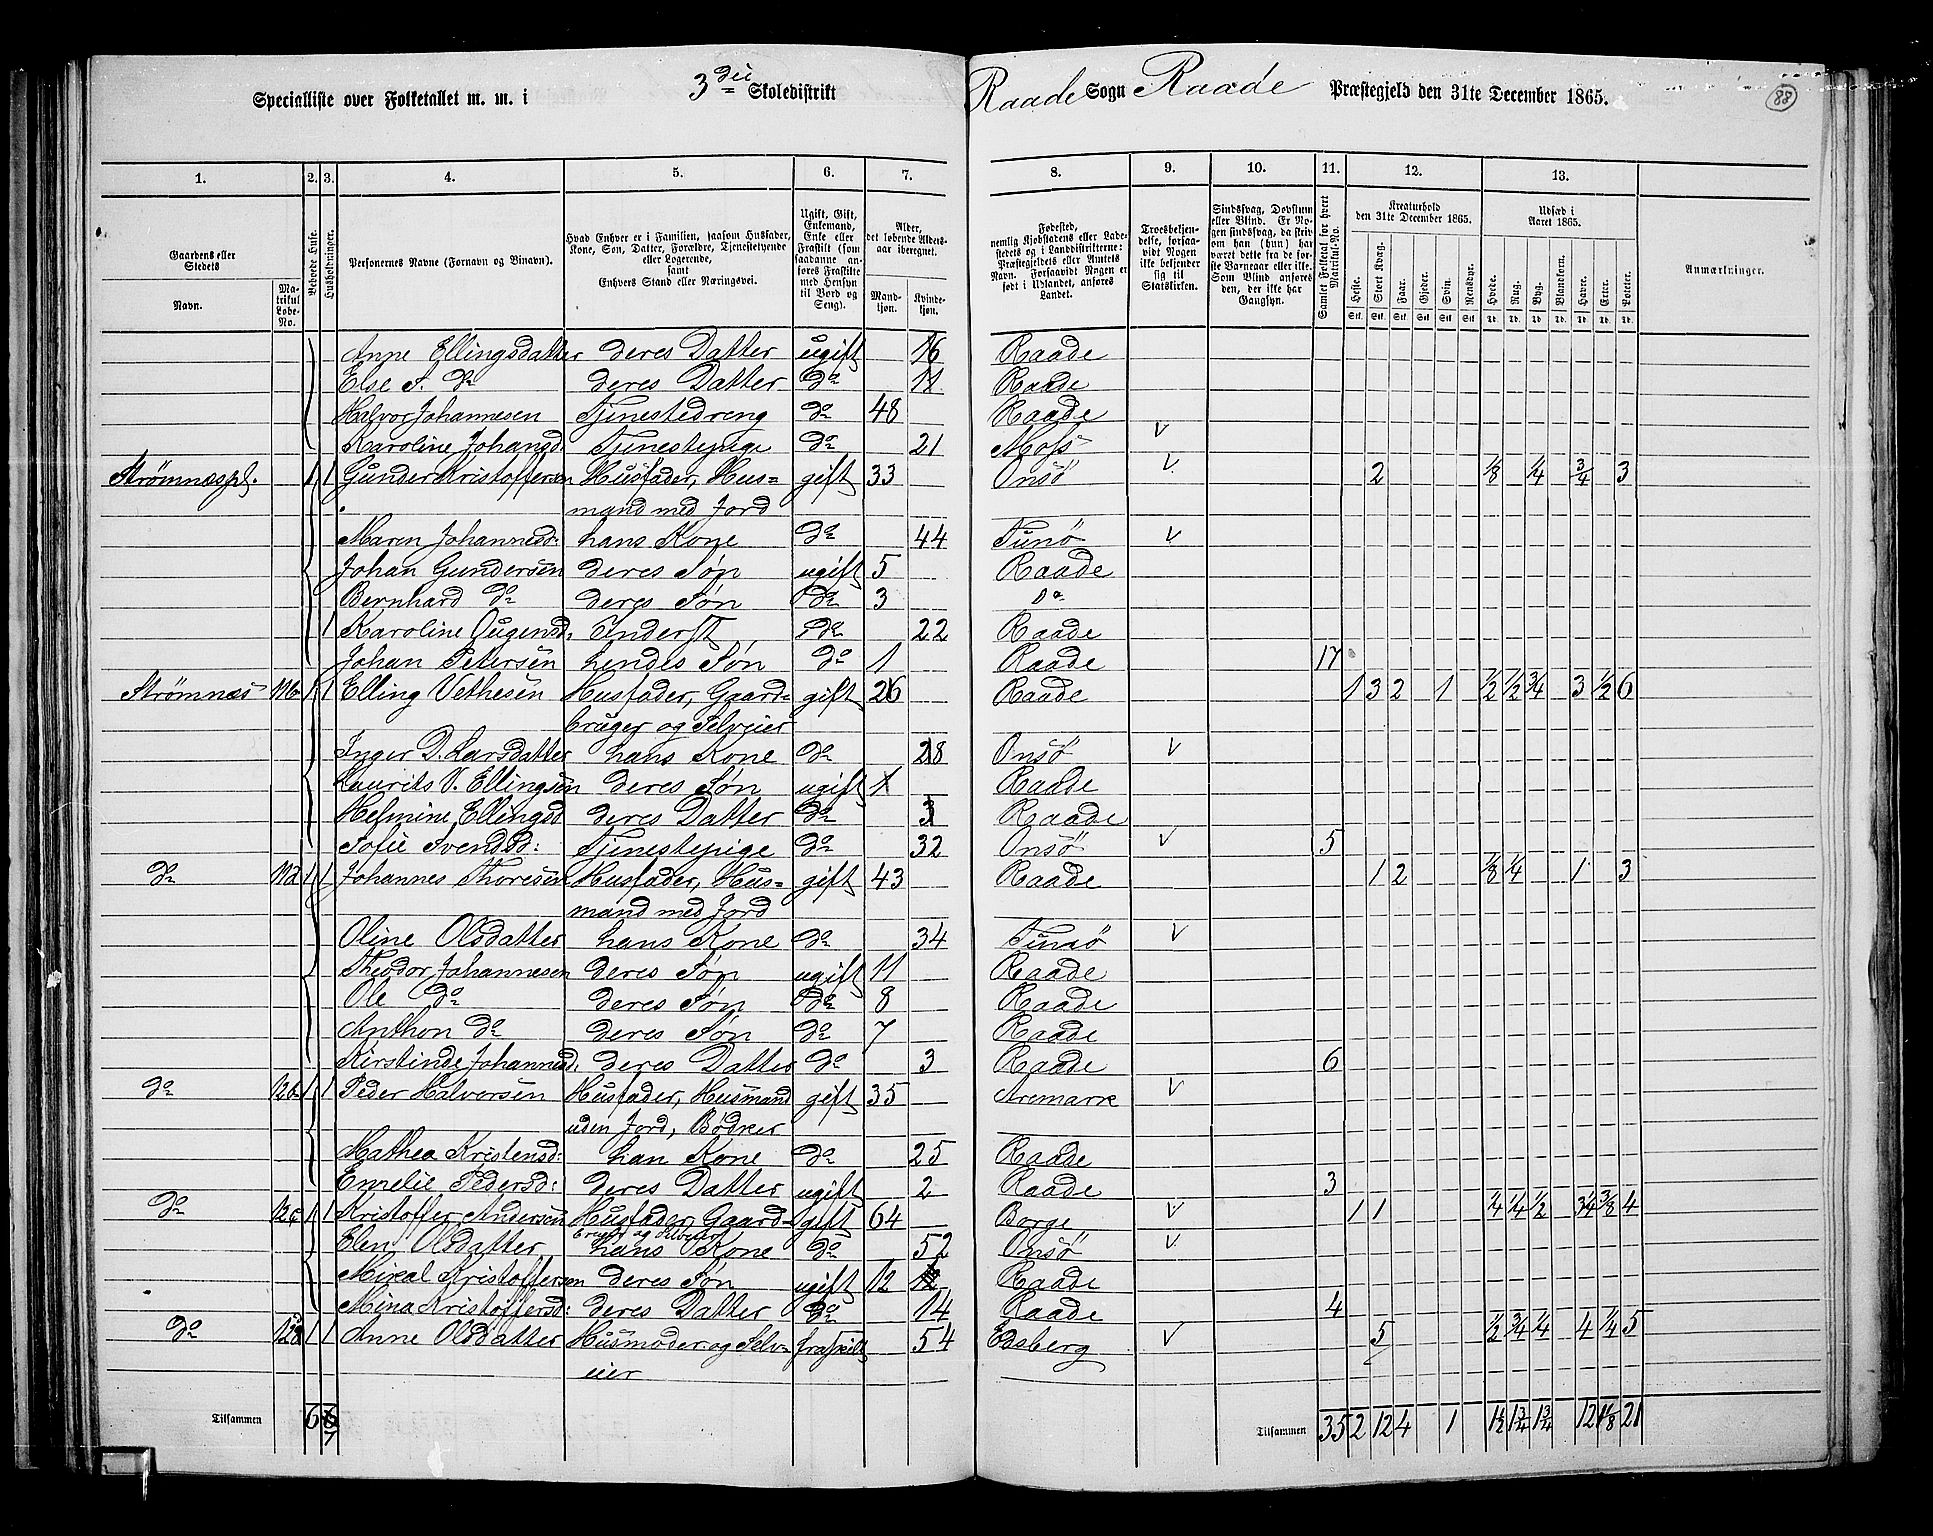 Specialliste over Folketallet m. m. i 3die Skoledistrikt Raade Sogn Raade Præstegjeld den 31te December 1865. 88
1. 2. 3. 4. 5. 6. 7. 8. 9. 10. 11. 12. 13.
Gaardens eller Stedets
Navn.
Matrikul Løbe-No.
Beboede Huse.
Husholdninger.
Personernes Navne (Fornavn og Binavn).
Hvad Enhver er i Familien, saasom Husfader, Kone, Søn, Datter, Forældre, Tjenestetyende eller Logerende, samt Enhvers Stand eller Næringsvei.
Ugift, Gift, Enkemand, Enke eller Fraskilt (som saadanne anføres Fraskilte med Hensyn til Bord og Seng).
Alder, det løbende Aldersaar iberegnet.
Mandkjøn.
Kvindekjøn.
Fødested, nemlig Kjøbstadens eller Ladestedets og i Landdistrikterne: Præstegjeldets eller Amtets Navn. Forsaavidt Nogen er født i Udlandet, anføres Landet.
Troesbekjendelse, forsaavidt Nogen ikke bekjender sig til Statskirken.
Sindssvag, Døvstum eller Blind. Er Nogen sindssvag, da skrives om han (hun) har været dette fra de første Barneaar eller ikke. Som Blind anføres den, der ikke har Gangsyn.
Samlet Folketal for hvert Matrikul-No.
Kreaturhold den 31te December 1865.
Heste. Stort Kvæg. Faar. Gjeder. Svin. Rensdyr.
Udsæd i Aaret 1865.
Hvede. Rug. Byg. Blandkorn. Havre. Erter. Poteter.
Anmærkninger.
Anne Ellingsdatter deres Datter ugift 16 Raade
Else S. do deres Datter do 11 Raade
Halvor Johannesen Tjenestedreng do 48 Raade
Karoline Johansd. Tjenestepige do 21 Moss v
Strømnæspl. 1 1 Gunder Kristoffersen Husfader, Hus= gift 33 Onsø v 2 1/8 1/4 3/4 3
mand med Jord
Maren Johannesd: hans Kone do 44 Tunø v
Johan Gundersen deres Søn ugift 5 Raade
Bernhard do deres Søn do 3 do
1 Karoline Eugensd. Inderst do 22 Raade
Johan Petersen hendes Søn do 1 Raade 17
Strømnæs 1 1 Elling Vethesen Husfader, Gaard= gift 26 Raade 1 3 2 1 1/2 1/2 3/4 3 1/2 6
bruger og Selveier
Inger D. Larsdatter hans Kone do 28 Onsø v
Laurits V. Ellingsen deres Søn ugift 1 Raade
Helmine Ellingsd deres Datter do 3 Raade
Sofie Svendsd: Tjenestepige do 32 Onsø v 5
do 1 1 Johannes Thoresen Husfader, Hus= gift 43 Raade 1 2 1/8 1/4 1 3
mand med Jord
Oline Olsdatter hans Kone do 34 Tunø v
Theodor Johannesen deres Søn ugift 11 Raade
Ole do deres Søn do 8 Raade
Anthon do deres Søn do 7 Raade
Kirstinde Johannesd. deres Datter do 3 Raade 6
do 12b 1 1 Peder Halvorsen Husfader, Husmand gift 35 Aremark v
uden Jord, Bødker
Mathea Kristensd: han Kone do 25 Raade
Emelie Pedersd: deres Datter ugift 2 Raade 3
do 12c 1 1 Kristoffer Andersen Husfader, Gaard= gift 64 Borge v 1 1 1/4 1/4 1/2 3 1/4 3/8 4
bruger og Selveier
Elen Olsdatter hans Kone do 52 Onsø v
Mikal Kristoffersen deres Søn ugift 12 Raade
Mina Kristoffersd: deres Datter do 14 Raade 4
do 1 1 Anne Olsdatter Husmoder og Selv= fraskilt 54 Edsberg v 5 1/2 3/4 1/4 4 1/4 5
eier
Tilsammen 6 7 Tilsammen 35 2 12 4 1 1 1/2 1 3/4 1 3/4 12 1 1/8 21